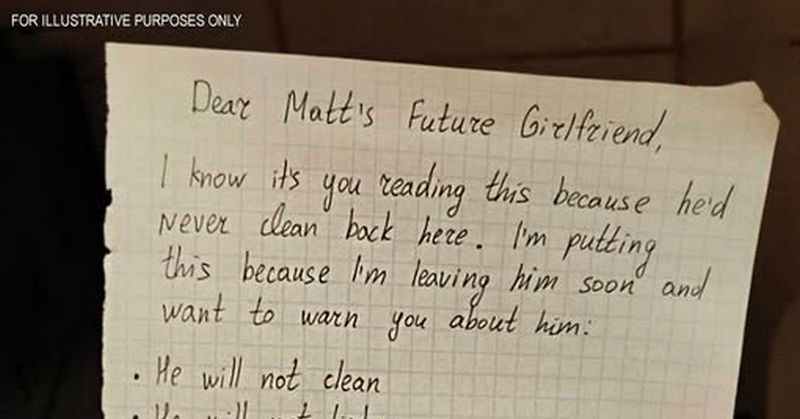 FOR ILLUSTRATIVE PURPOSES ONLY
Dear Matt's Future Girlfriend,
I know it's you reading this because he'd
never clean back here. I'm putting
this because I'm leaving him soon and
want to warn you about him:
• He will not clean
• He will not